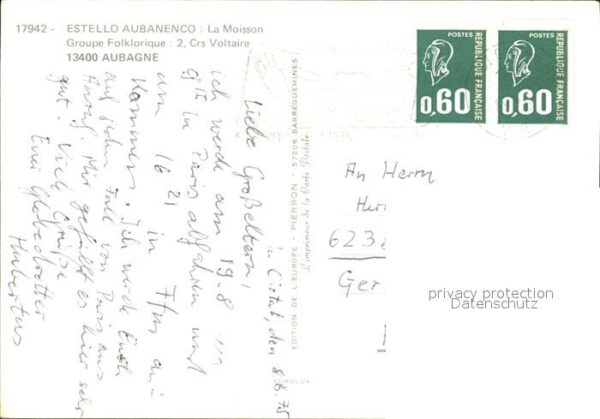 17942 - ESTELLO AUBANENCO : La Moisson
Groupe Folklorique : 2, Crs Voltaire
13400 AUBAGNE
POSTES
REPUBLIQUE FRANÇAISE
0,60
POSTES
REPUBLIQUE FRANÇAISE
0,60
den 8.8.75
Liebe Großeltern,
ich werde am 19.8
in Paris abfahren und
um 16 21 in Ffm an-
kommen. Ich werde Euch
auf jeden Fall von Paris aus
Mir gefällt es hier sehr
gut. Viele Grüße
Euer Globetrotter
Hubertus
EDITION DE L'EUROPE - PIERRON - 57206 SARREGUEMINES
L'imprimeur de la Carte Postale
An Herrn
623
Ger
privacy protection
Datenschutz